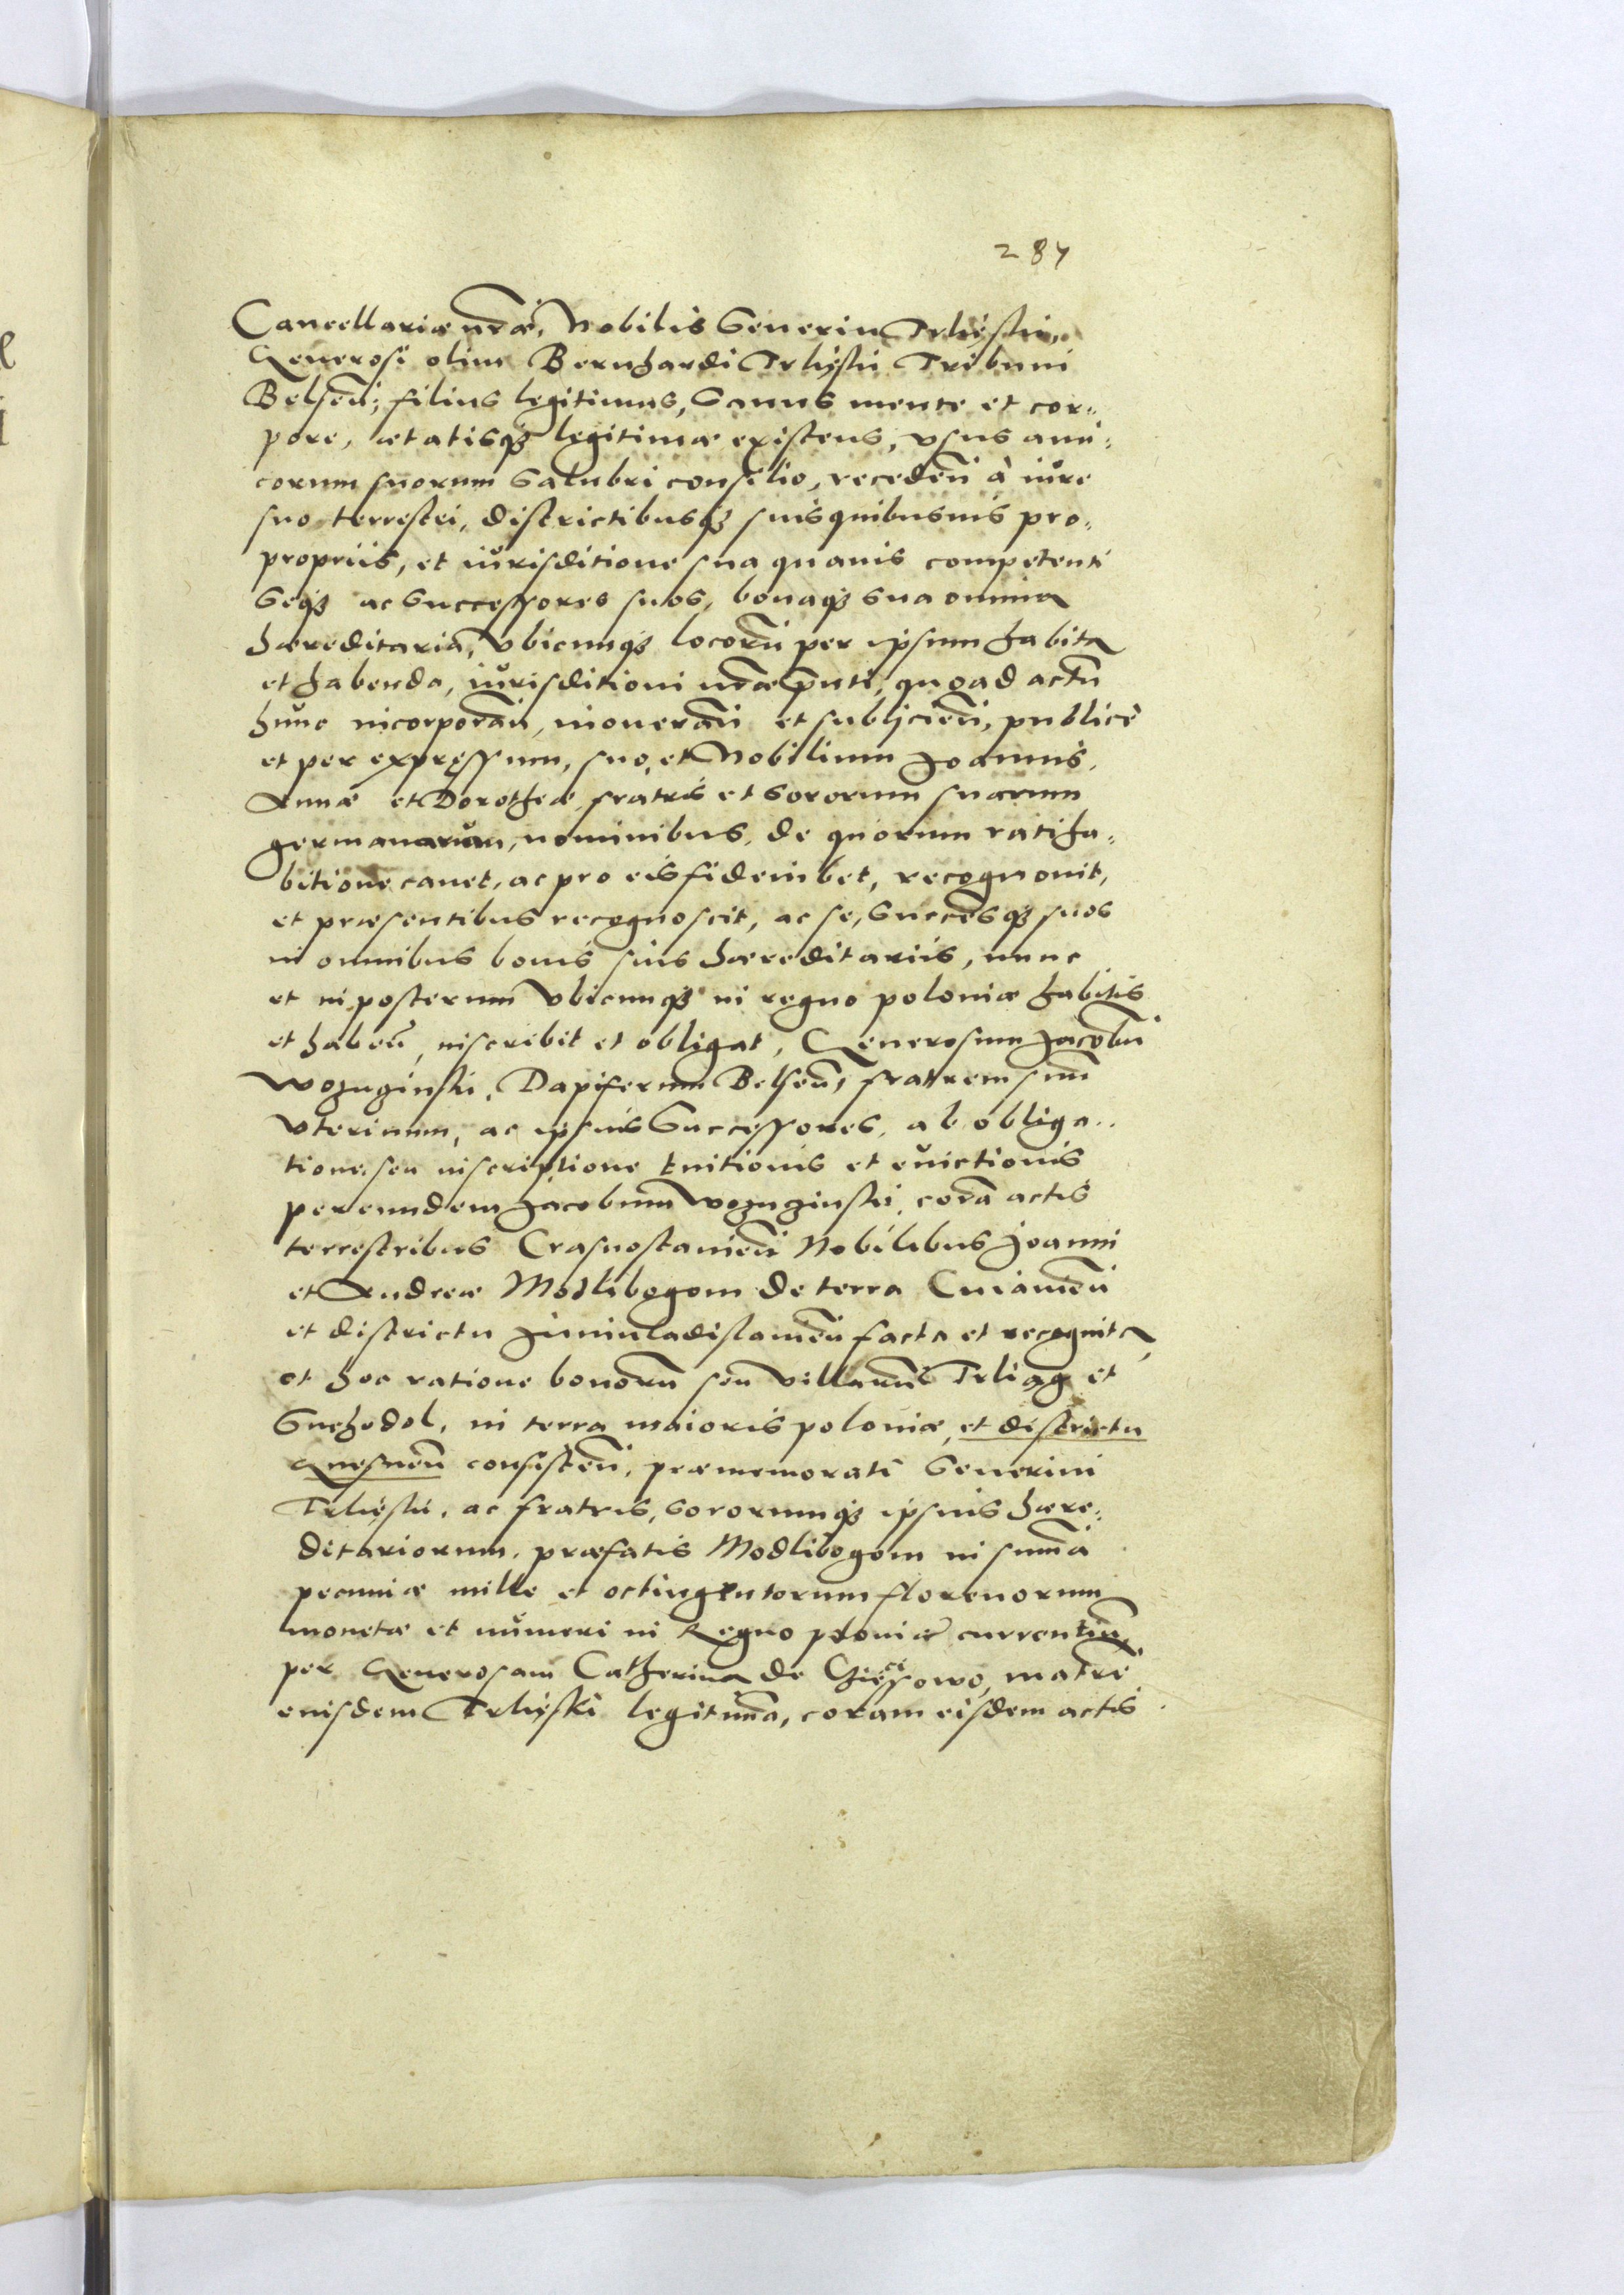 284
Cancellariæ nr̃æ, Nobilis Severin Trlięski,
Generosi olim Bernhardi Trlięski Tribuni
Belsen̄, filius legitimus, Sanus mente et cor-
pore, ætatisq̃ legitimæ existens, vsus ami-
corum suorum Salubri consilio, receden̄ à iŭre
suo terrestri, districtibusq̃ suis quibusuis pro-
propriis, et iŭrisditione sua quauis competenti
Seq̃ ac Successores suos, bonaq̃ sua omnia
hæreditaria, vbicunq̃ locorū per ipsum habita
et habenda, iŭrisditioni nr̃æ p̃nti, quoad actū
hŭnc incorporan̄, inoueran̄ et subijcien̄, publicè
et per expręssum, suo, et Nobilium Joannis,
Annæ et Dorotheæ fratris et Sororum suarum
germanarum, nominibus, de quorum ratiha-
bitione cauet, ac pro eis fideiubet, recognouit,
et præsentibus recognoscit, ac se, Succesq̃ suos
in omnibus bonis suis hæreditariis, nunc
et in posterum vbicunq̃ in regno poloniæ habitis
et haben̄, inscribit et obligat, Generosum Jacobū
Wozuginski, Dapiferum Belsen̄, fratrem suū
vterinum, ac ipsius Successores, ab obliga-
tione, seu inscriptione tuitionis et euictionis
per eundem Jacobum Wozuginski, corā actis
terrestribus Crasnostauien̄ Nobilibus Joanni
et Andreæ Modlibogom de terra Cuiauien̄
et districtu Juniuladislauien̄ facta et recognita,
et hoc ratione bonorū seu villarū Trliąg et
Suchodol, in terra maioris poloniæ, et districtu
Gnesnen̄ consisten̄, præmemorati Seuerini
Trlięski, ac fratris, Sororumq̃ ipsius hære-
ditariorum, præfatis Modlibogom in summa
pecuniæ mille et octingentorum florenorum
monetæ et nŭmeri in Regno poloniæ currentiū,
per Generosam Catherina de matrē
eiusdem Trlięski legitimā, coram eisdem actis